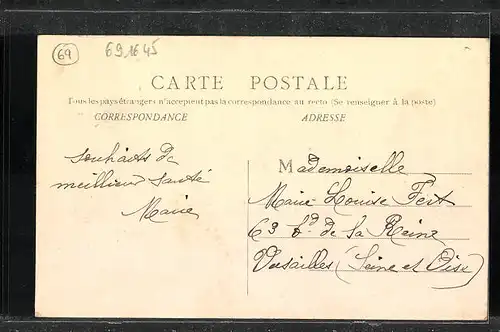 69
69 1645
CARTE POSTALE
Tous les pays étrangers n'acceptent pas la correspondance au recto (Se renseigner à la poste)
CORRESPONDANCE
ADRESSE
souhaits de
meillieur santé
Marie
Mademoiselle
Marie Louise Fert
63 Bd de la Reine
Versailles (Seine et Oise)